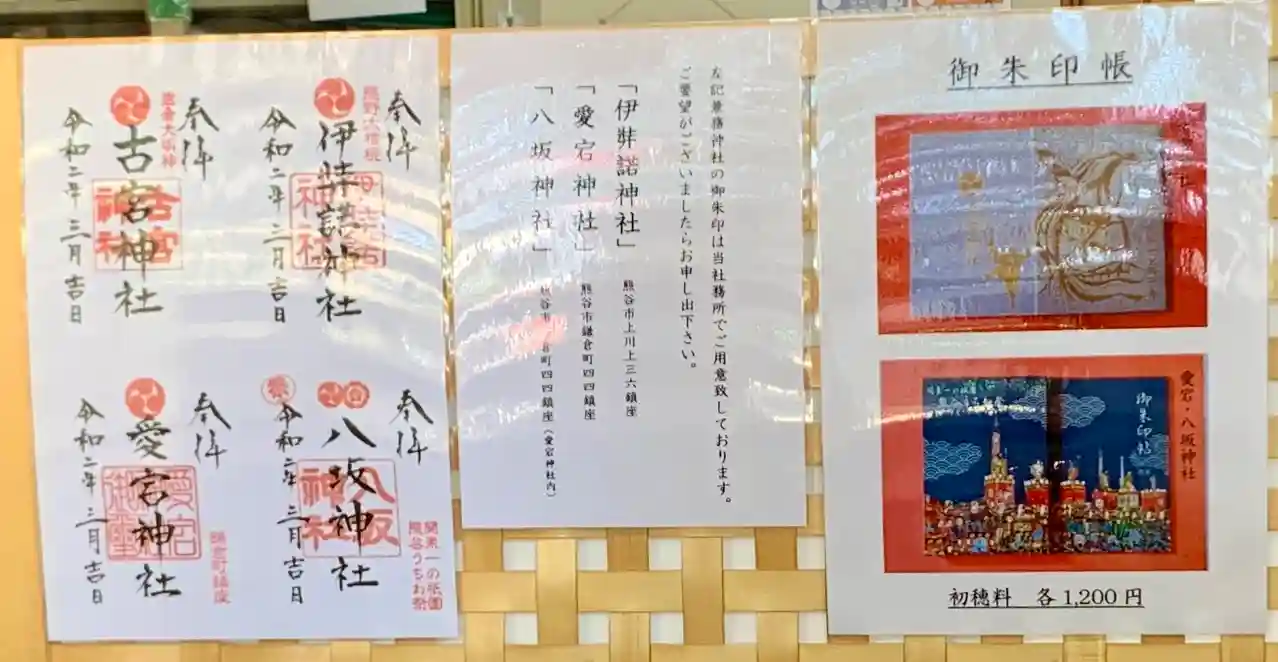 奉拝
熊野大権現
伊弉諾神社
令和二年 三月吉日
奉拝
古宮神社
古宮神社
令和二年 三月吉日
奉拝
八坂神社
八坂神社
令和二年 三月吉日
関東一の祇園
熊谷うちわ祭
奉拝
愛宕神社
令和二年 三月吉日
鎌倉町鎮座
左記兼務神社の御朱印は当社務所でご用意致しております。
ご要望がございましたらお申し出下さい。
「伊弉諾神社」 熊谷市上川上三六鎮座
「愛宕神社」 熊谷市鎌倉町四四鎮座
「八坂神社」 熊谷市 倉町四四鎮座（愛宕神社内）
御朱印帳
愛宕・八坂神社
御朱印帖
初穂料 各1,200円